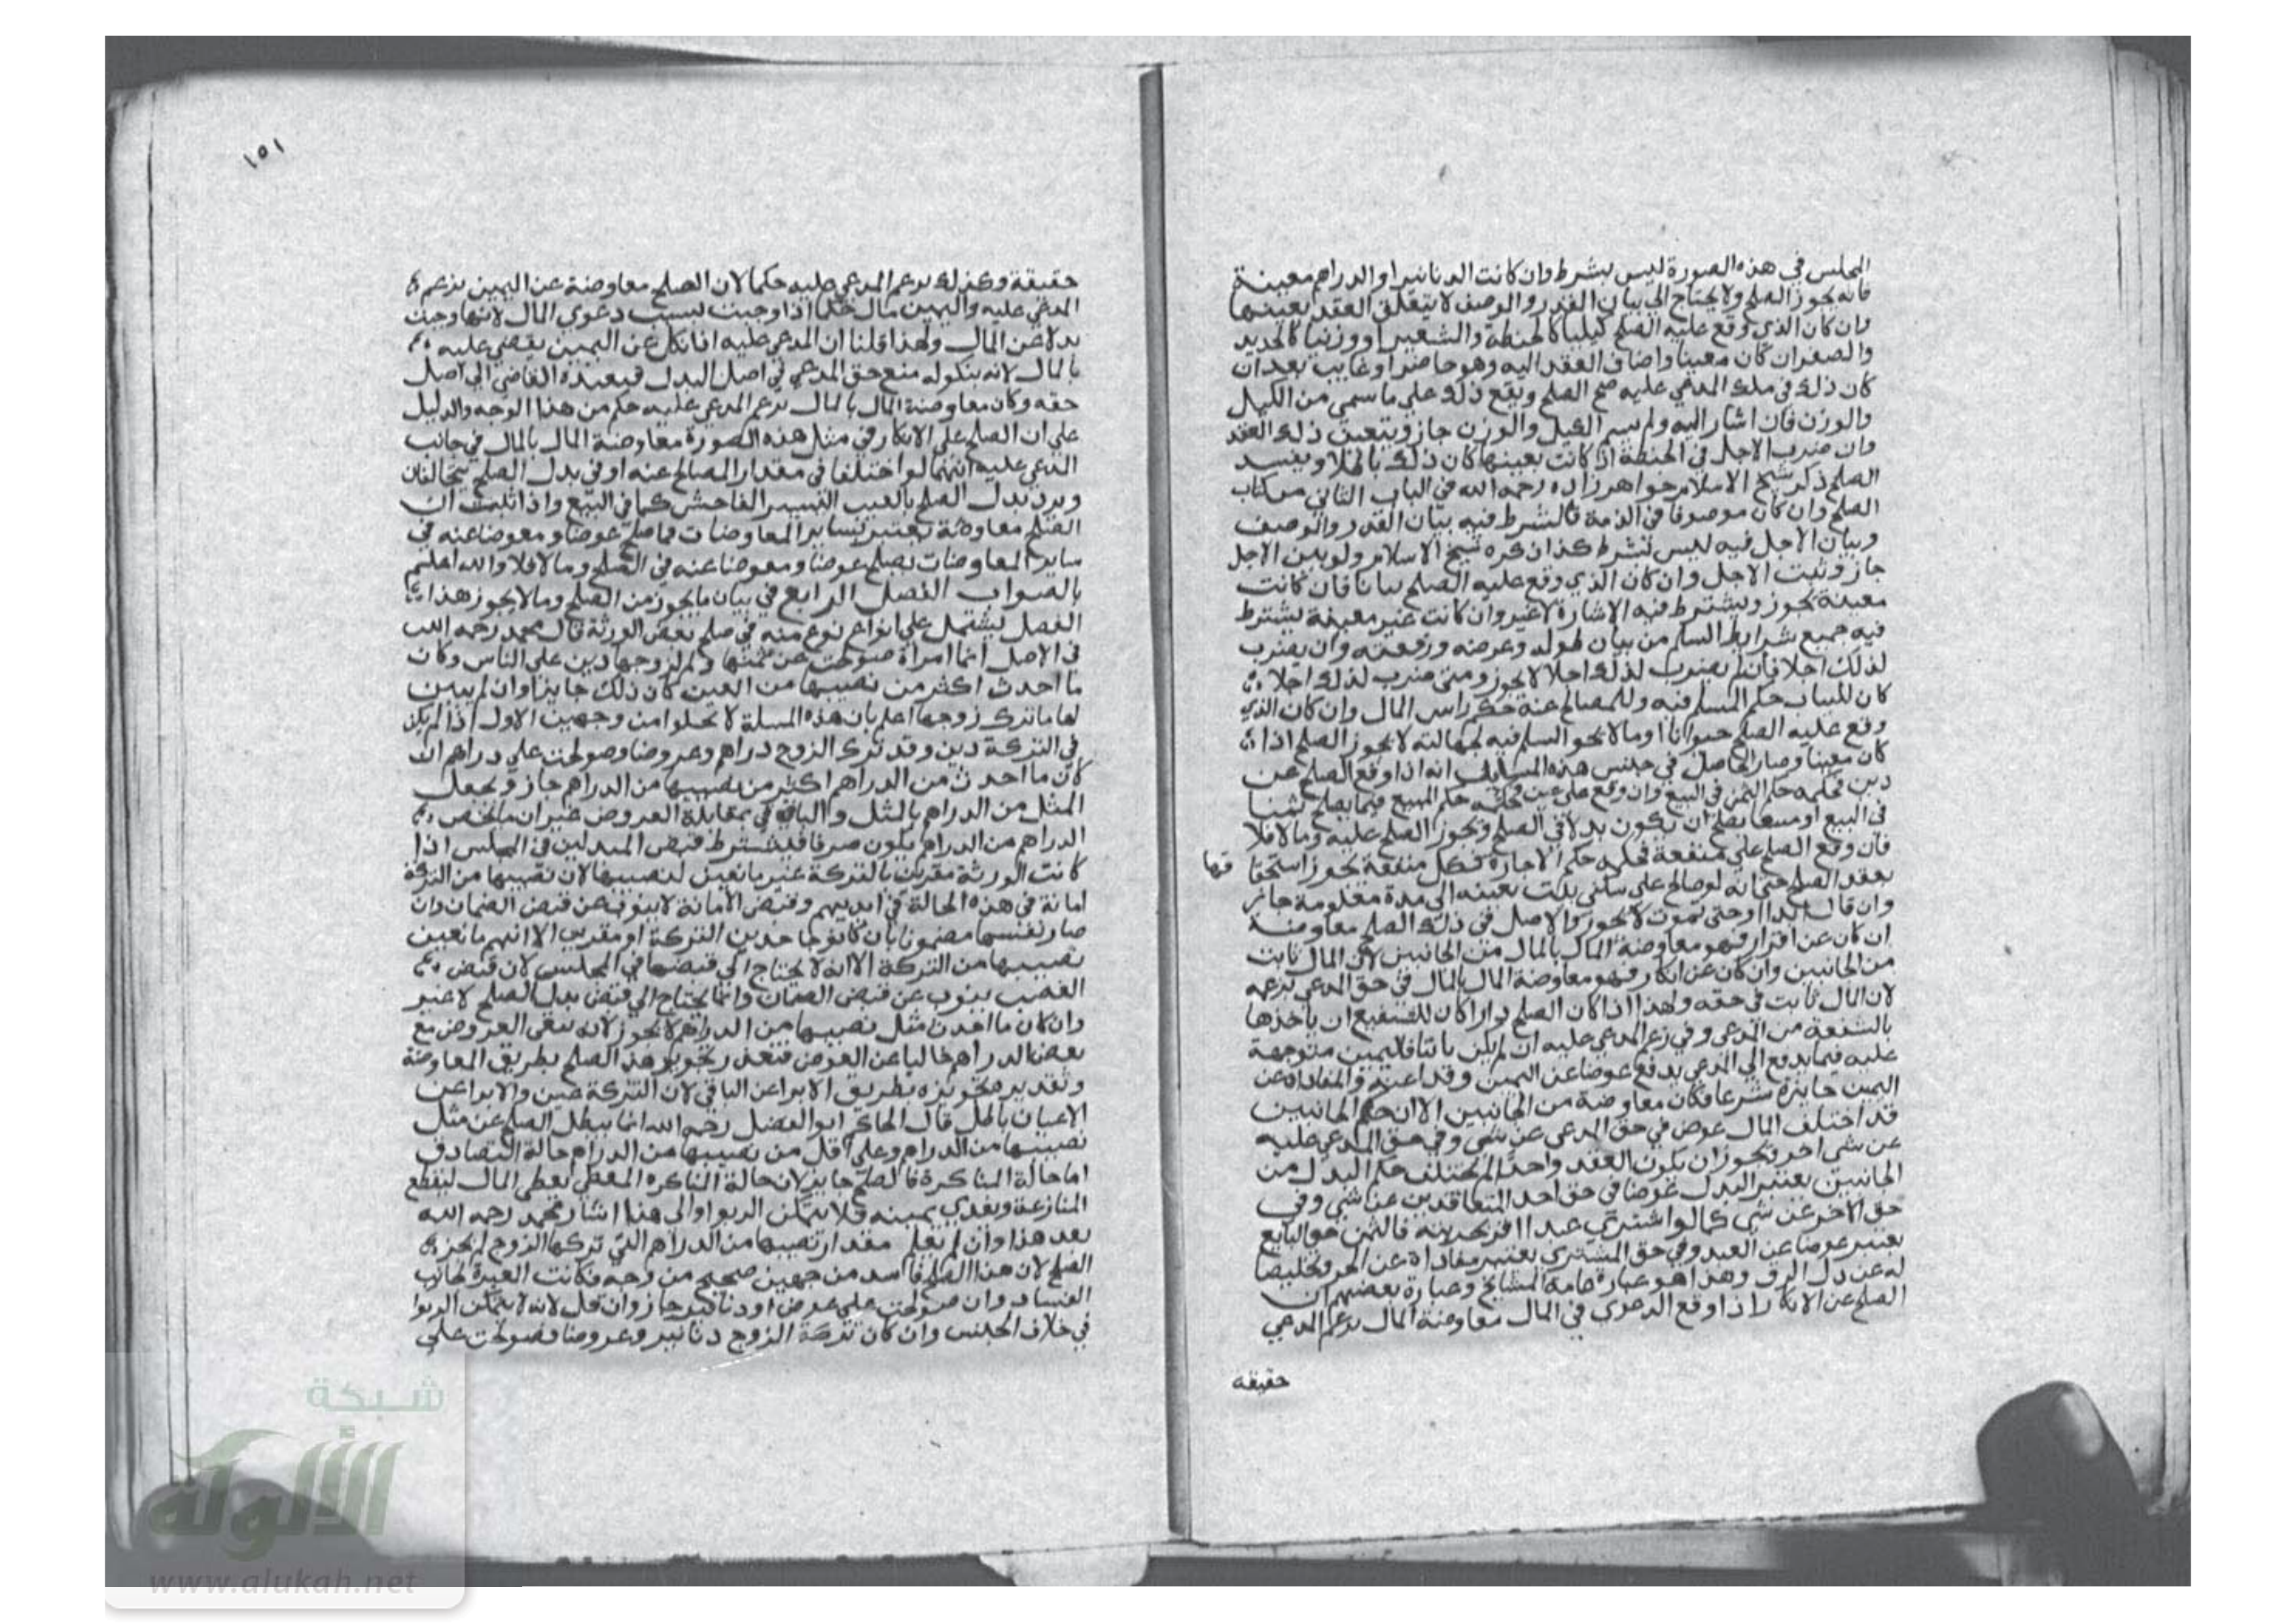 المجلس في هذه الصورة ليس بشرط وان كانت الدنانير او الدراهم معينة
فانه يجوز الصلح ولا يحتاج الي بيان القدر والوصف لا يتعلق العقد بعينها
وان كان الذي وقع عليه الصلح كيليا كالحنطة والشعير او وزنيا كالحديد
والصفر ان كان معينا واضاف العقد اليه وهو حاضر او غايب بعد ان
كان ذلك في ملك المدعي عليه صح الصلح ويقع ذلك علي ما سمي من الكيل
والوزن فان اشار اليه ولم يسم الكيل والوزن جاز ويتعين ذلك العقد
وان ضرب الاجل في الحنطة اذا كانت بعينها كان ذلك باطلا ويفسد
الصلح ذكر شيخ الاسلام خواهر زاده رحمه الله في الباب الثاني من كتاب
الصلح وان كان موصوفا في الذمة فالشرط فيه بيان القدر والوصف
وبيان الاجل فيه ليس بشرط كذا ذكره شيخ الاسلام ولو بين الاجل
جاز وثبت الاجل وان كان الذي وقع عليه الصلح ثيابا فان كانت
معينة يجوز ويشترط فيه الاشارة لا غير وان كانت غير معينة يشترط
فيه جميع شرايط السلم من بيان طوله وعرضه ورقعته وان يضرب
لذلك اجلا فان لم يضرب لذلك اجلا لا يجوز ومتي ضرب لذلك اجلا
كان للثياب حكم المسلم فيه وللمصالح عنه حكم راس المال وان كان الذي
وقع عليه الصلح حيوانا او ما لا يجوز السلم فيه لجهالته لا يجوز الصلح الا اذا
كان معينا وصار الحاصل في جنس هذه المسايل انه اذا وقع الصلح عن
دين فحكمه حكم الثمن في البيع وان وقع علي عين فحكمه حكم المبيع فيما يصلح ثمنا
في البيع او مبيعا يصلح ان يكون بدلا في الصلح ويجوز الصلح عليه وما لا فلا
فان وقع الصلح علي منفعة فحكمه حكم الاجارة فكل منفعة يجوز استحقا قها
بعقد الصلح حتي انه لو صالح علي سكني بيت بعينه الي مدة معلومة جاز
وان قال ابدا او حتي يموت لا يجوز والاصل في ذلك الصلح معاوضة
ان كان عن اقرار فهو معاوضة المال بالمال من الجانبين لان المال ثابت
من الجانبين وان كان عن انكار فهو معاوضة المال بالمال في حق المدعي بزعمه
لان المال ثابت في حقه ولهذا اذا كان الصلح دارا كان للشفيع ان ياخذها
بالشفعة من المدعي وفي زعم المدعي عليه ان لم يكن ثابتا فاليمين متوجهة
عليه فيما يدفع الي المدعي يدفع عوضا عن اليمين وفداعنه والمفاداة عن
اليمين جايزة شرعا فكان معاوضة من الجانبين الا ان حكم الجانبين
قد اختلف المال عوض في حق المدعي عن شي وفي حق المدعي عليه
عن شي اخر ويجوز ان يكون العقد واحدا ثم يختلف حكم البدل من
الجانبين يعتبر البدل عوضا في حق احد المتعاقدين عن شي وفي
حق الاخر عن شي كما لو اشتري عبدا اقر بحريته فالثمن في حق البايع
يعتبر عوضا عن العبد وفي حق المشتري يعتبر مفاداة عن الحر وتخليصا
له عن ذل الرق وهذا هو عبارة عامة المشايخ وعبارة بعضهم ان
الصلح عن الانكار اذا وقع الدعوي في المال معاوضة المال بزعم المدعي
حقيقه
١٥١
حقيقة وكذلك بزعم المدعي عليه حكما لان الصلح معاوضة عن اليمين بزعم
المدعي عليه واليمين مال حكما اذا وجبت بسبب دعوي المال لانها وجبت
بدلا عن المال ولهذا قلنا ان المدعي عليه اذا نكل عن اليمين يقضي عليه
بالمال لانه بنكوله منع حق المدعي في اصل البدل فيعيده القاضي الي اصل
حقه وكان معاوضة المال بالمال بزعم المدعي عليه حكم من هذا الوجه والدليل
علي ان الصلح علي الانكار في مثل هذه الصورة معاوضة المال بالمال في جانب
المدعي عليه انهما لو اختلفا في مقدار المصالح عنه او في بدل الصلح يتحالفان
ويرد بدل الصلح بالعيب اليسير الفاحش كما في البيع واذا ثبت ان
الصلح معاوضة يعتبر بساير المعاوضات فما صلح عوضا ومعوضا عنه في
ساير المعاوضات يصلح عوضا ومعوضا عنه في الصلح وما لا فلا والله اعلم
بالصواب الفصل الرابع في بيان ما يجوز من الصلح وما لا يجوز هذا
الفصل يشتمل علي انواع نوع منه في صلح بعض الورثة قال محمد رحمه الله
في الاصل ايما امراة صولحت عن ثمنها ولم لزوجها دين علي الناس وكان
ما احدث اكثر من نصيبها من العين كان ذلك جايزا وان لم يبين
لها ما ترك زوجها اعلم بان هذه المسلة لا تخلوا من وجهين الاول اذا لم يكن
في التركة دين وقد ترك الزوج دراهم وعروضا وصولحت علي دراهم ان
كان ما احدث من الدراهم اكثر من نصيبها من الدراهم جاز ويجعل
المثل من الدراهم بالمثل والباقي بمقابلة العروض غير ان ما يخص
الدراهم من الدراهم يكون صرفا فيشترط قبض البدلين في المجلس اذا
كانت الورثة مقرين بالتركة غير مانعين لنصيبها لان نصيبها من التركة
امانة في هذه الحالة في ايديهم وقبض الامانة لا ينوب عن قبض الضمان وان
صار نفسها مضمونا بان كانوا جاحدين التركة او مقرين الا انهم مانعين
نصيبها من التركة الا انه لا يحتاج الي قبضها في المجلس لان قبض
الغصب ينوب عن قبض الضمان وانما يحتاج الي قبض بدل الصلح لا غير
وان كان ما اخذت مثل نصيبها من الدراهم لا يجوز لانه يبقي العروض مع
بعض الدراهم خاليا عن العوض فتعذر تجويز هذا الصلح بطريق المعاوضة
وتعذر تجويزه بطريق الابرا عن الباقي لان التركة عين والابرا عن
الاعيان باطل قال الحاكم ابو الفضل رحمه الله انما يبطل الصلح عن مثل
نصيبها من الدراهم وعلي اقل من نصيبها من الدراهم حالة التصادق
اما حالة المناكرة فالصلح جايز لان حالة المناكرة المعطي يعطي المال ليقطع
المنازعة ويفدي يمينه فلا يتمكن الربوا والي هذا اشار محمد رحمه الله
بعد هذا وان لم يعلم مقدار نصيبها من الدراهم التي تركها الزوج لم يجز
الصلح لان هذا الصلح فاسد من جهين صحيح من وجه فكانت العبرة لجانب
الفساد وان صولحت علي عوض او دنانير جاز وان قل لانه لا يتمكن الربوا
في خلاف الجنس وان كان تركة الزوج دنانير وعروضا فصولحت علي
شبكة
الألوكة
www.alukah.net